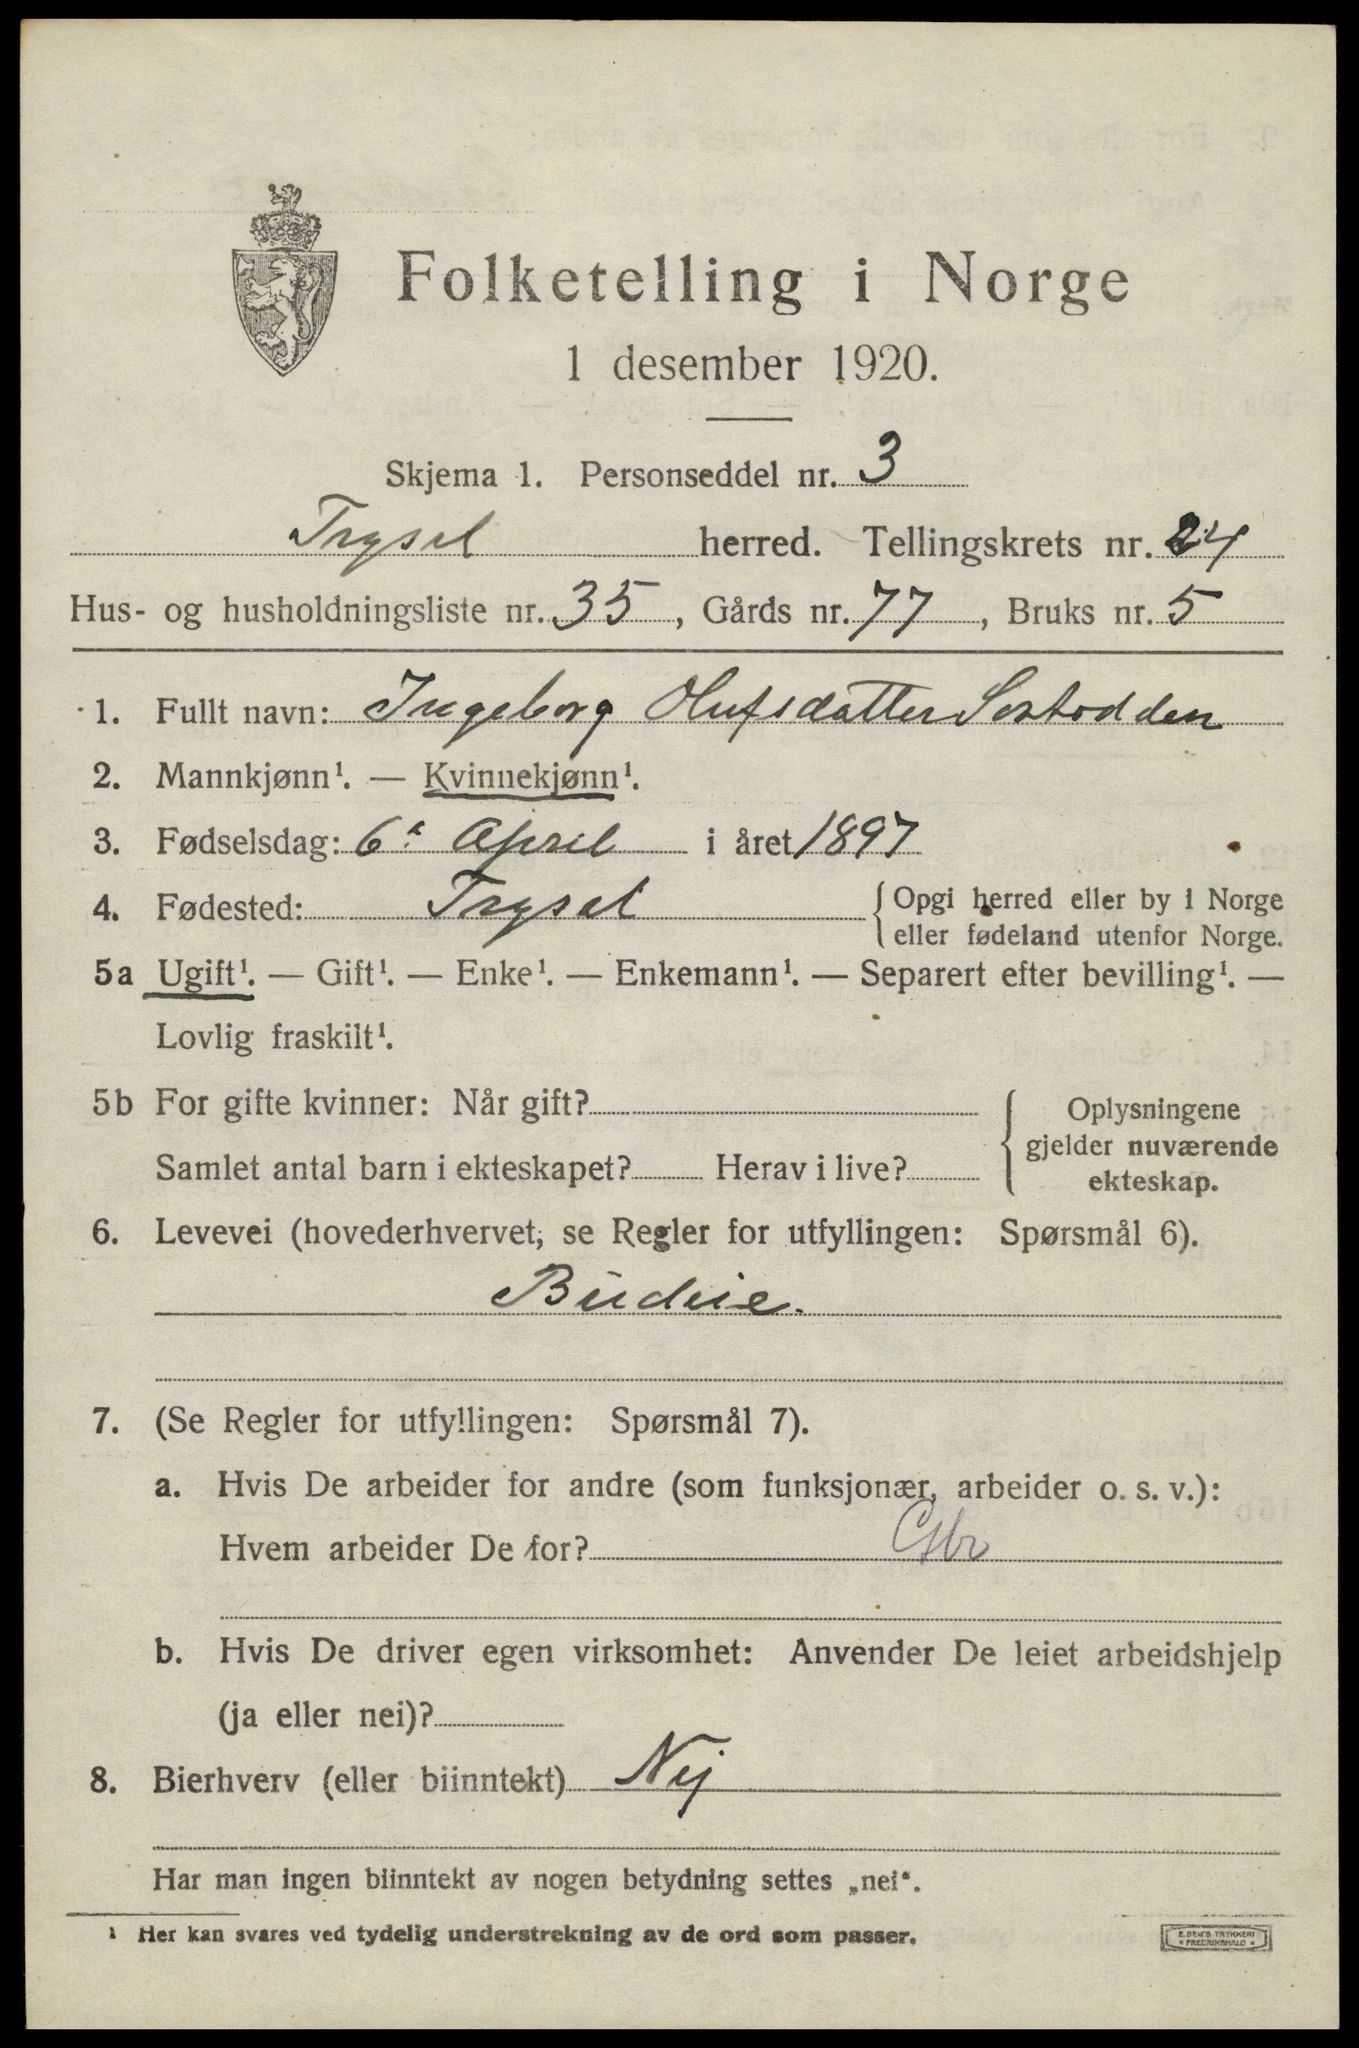 Folketelling i Norge
1 desember 1920.
Skjema 1. Personseddel nr. 3
Trysel herred. Tellingskrets nr. 24
Hus- og husholdningsliste nr. 35, Gårds nr. 77, Bruks nr. 5
1. Fullt navn: Ingeborg Olufsdatter
2. Mannkjønn¹. — Kvinnekjønn¹.
3. Fødselsdag: 6te April i året 1897
4. Fødested: Trysel {Opgi herred eller by i Norge
eller fødeland utenfor Norge.
5a Ugift¹. — Gift¹. — Enke¹. — Enkemann¹. — Separert efter bevilling¹. —
Lovlig fraskilt¹.
5b For gifte kvinner: Når gift?
Samlet antal barn i ekteskapet? Herav i live?
{Oplysningene
gjelder nuværende
ekteskap.
6. Levevei (hovederhvervet, se Regler for utfyllingen: Spørsmål 6).
Budeie.
7. (Se Regler for utfyllingen: Spørsmål 7).
a. Hvis De arbeider for andre (som funksjonær, arbeider o. s. v.):
Hvem arbeider De for?
b. Hvis De driver egen virksomhet: Anvender De leiet arbeidshjelp
(ja eller nei)?
8. Bierhverv (eller biinntekt) Nej
Har man ingen biinntekt av nogen betydning settes „nei“.
¹ Her kan svares ved tydelig understrekning av de ord som passer.
E. SEM'S TRYKKERI
FREDRIKSHALD